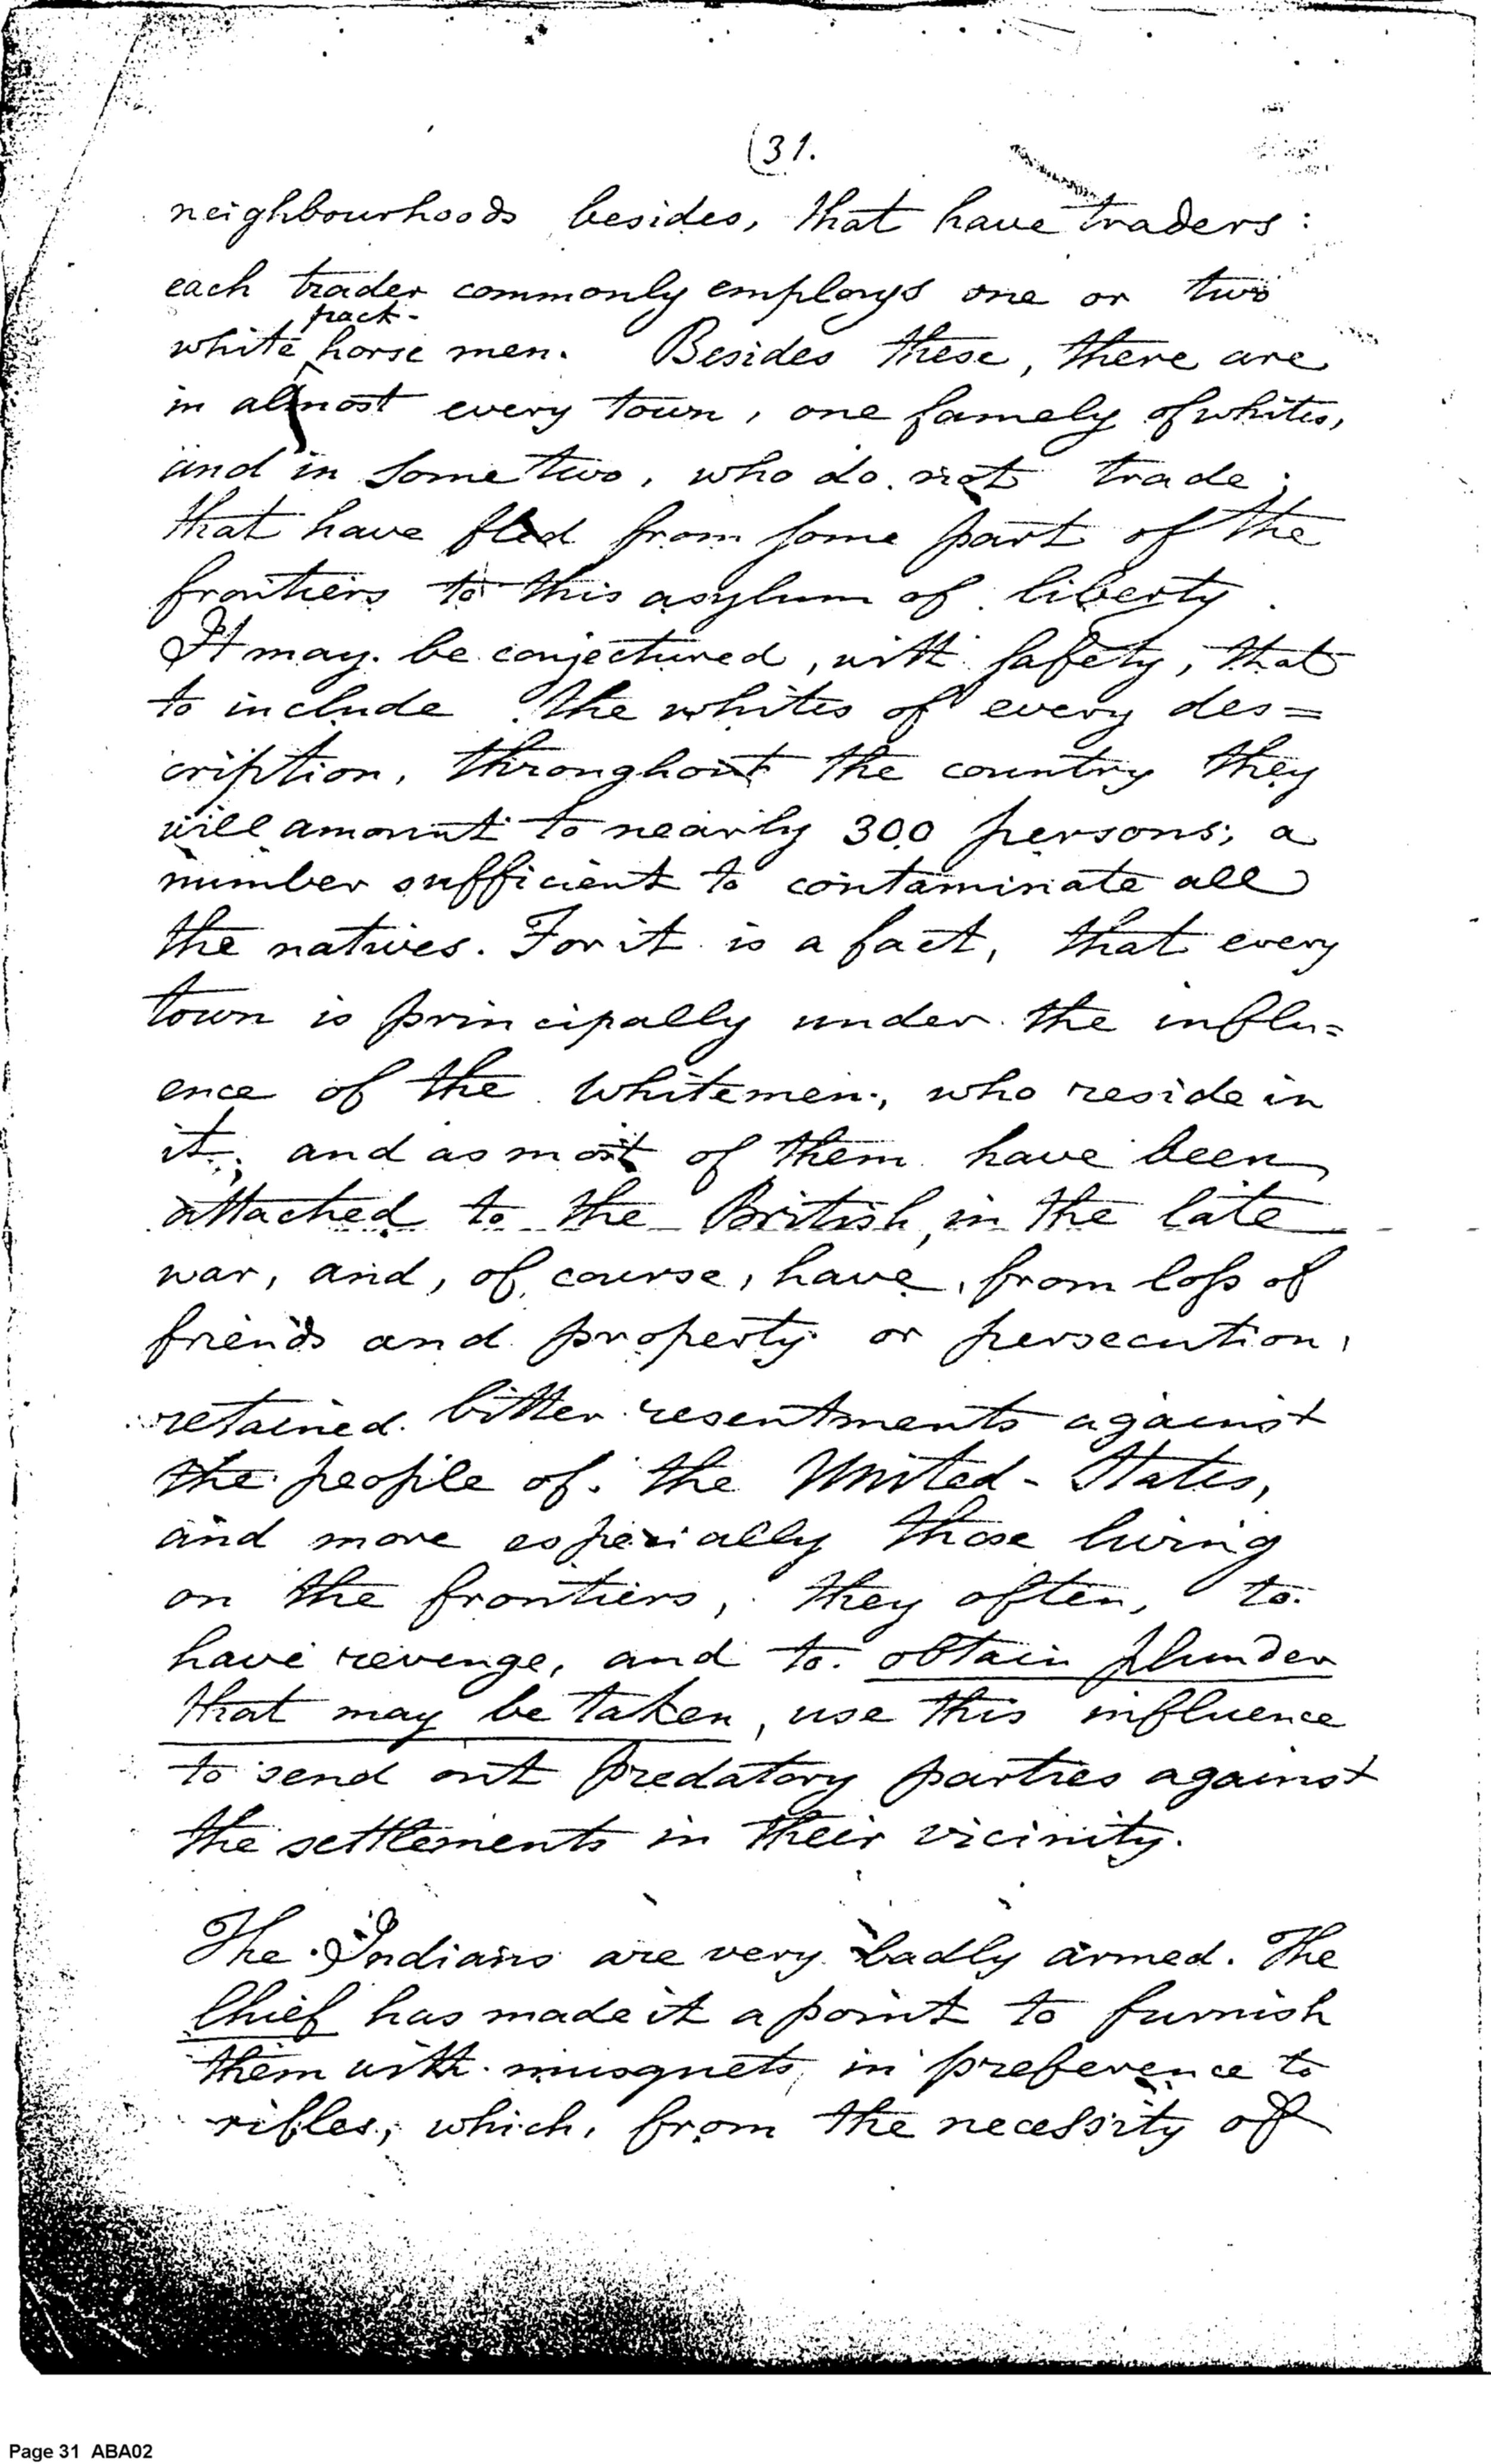 (31.
neighbourhoods besides, that have traders:
each trader commonly employs one or two
pack-
white horse men. Besides these, there are
in almost every town, one famely of whites,
and in some two, who do not trade;
that have fled from some part of the
frontiers to this asylum of liberty.
It may be conjectured, with safety, that
to include the whites of every des=
cription, throughout the country they
will amount to nearly 300 persons; a
number sufficient to contaminate all
the natives. For it is a fact, that every
town is principally under the influ=
ence of the whitemen, who reside in
it; and as most of them have been
attached to the British, in the late
war, and, of course, have, from loss of
friends and property or persecution,
retained bitter resentments against
the people of the United-States,
and more especially those living
on the frontiers, they often, to
have revenge, and to obtain plunder
that may be taken, use this influence
to send out predatory parties against
the settlements in their vicinity.
The Indians are very badly armed. The
Chief has made it a point to furnish
them with musquets, in preference to
rifles, which, from the necessity of
Page 31 ABA02